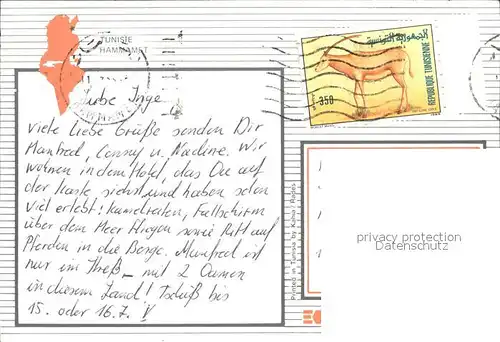 TUNISIE
HAMMAMET
الجمهورية التونسية
REPUBLIQUE TUNISIENNE
350
Liebe Inge
Viele liebe Grüße senden Dir
Manfred, Conny u. Nadine. Wir
wohnen in dem Hotel, das Du auf
der Karte siehst und haben schon
viel erlebt: Kamelreiten, Fallschirm
über dem Meer fliegen sowie Ritt auf
Pferden in die Berge. Manfred ist
nur im Streß – mit 2 Damen
in diesem Land! Tschüß bis
15. oder 16.7.
Printed in Tunisia by Kahia
privacy protection
Datenschutz